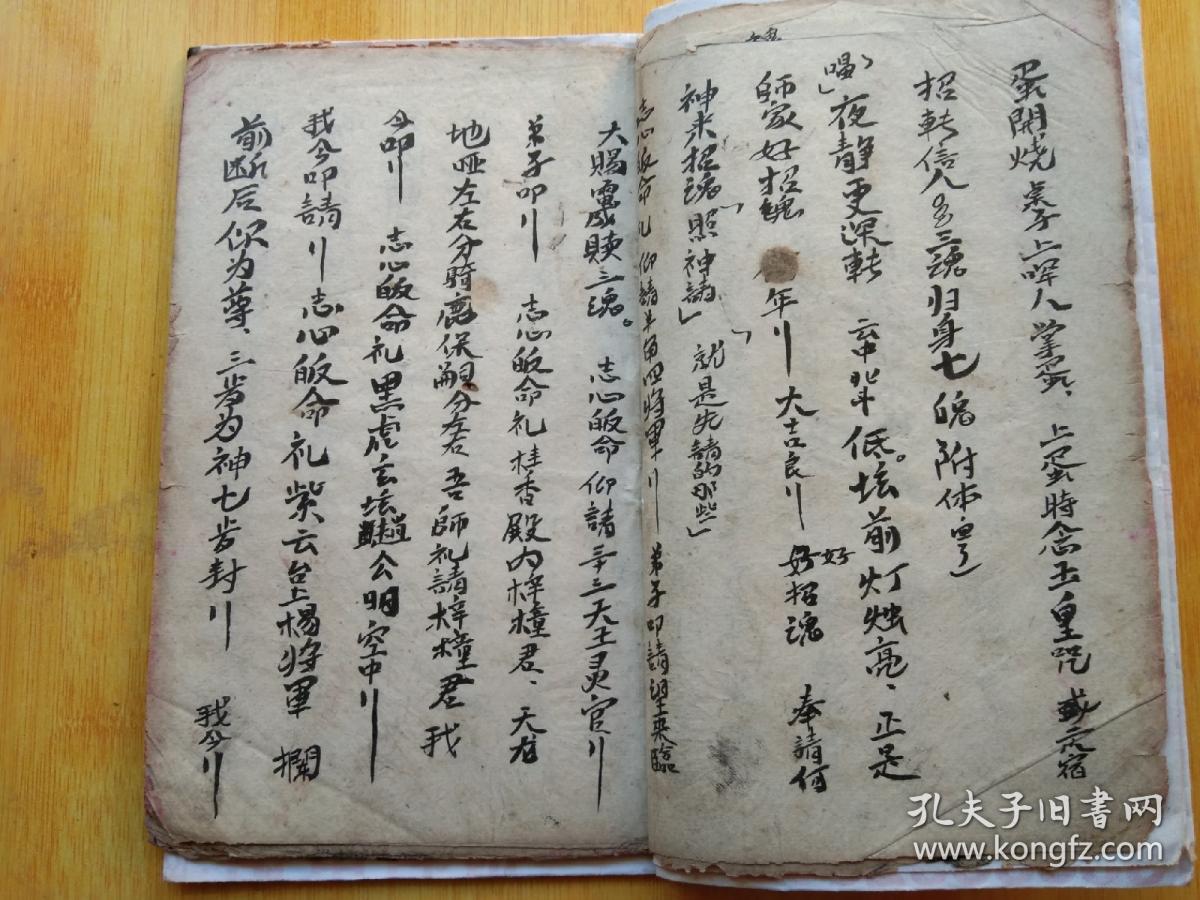 蛋開烧 弟子上 人掌蛋、上蛋時念玉皇咒 或 宿
招転信人 三魂归身七魄附体
唱」夜静更深転 空中北斗低。坛前灯烛亮、正是
師家好招魂 年〢 大吉良〢 好好招魂 奉請何
神来招魂照神請」 就是先請的那些」
志心皈命礼 仰請斗 四将軍〢 弟子叩請望来臨
大賜威 赎三魂。 志心皈命 仰請三十三天王灵官〢
弟子叩〢 志心皈命礼 桂香殿内梓橦君、天龙
地哑左右分 騎鹿保嗣分左右 吾師礼請梓橦君 我
今叩〢 志心皈命礼 黑虎玄坛趙公明 空中〢
我今叩請〢 志心皈命礼 紫云台上楊将軍 攔
前断后你为尊、三步为神七步封〢 我今〢
孔夫子旧书网
www.kongfz.com